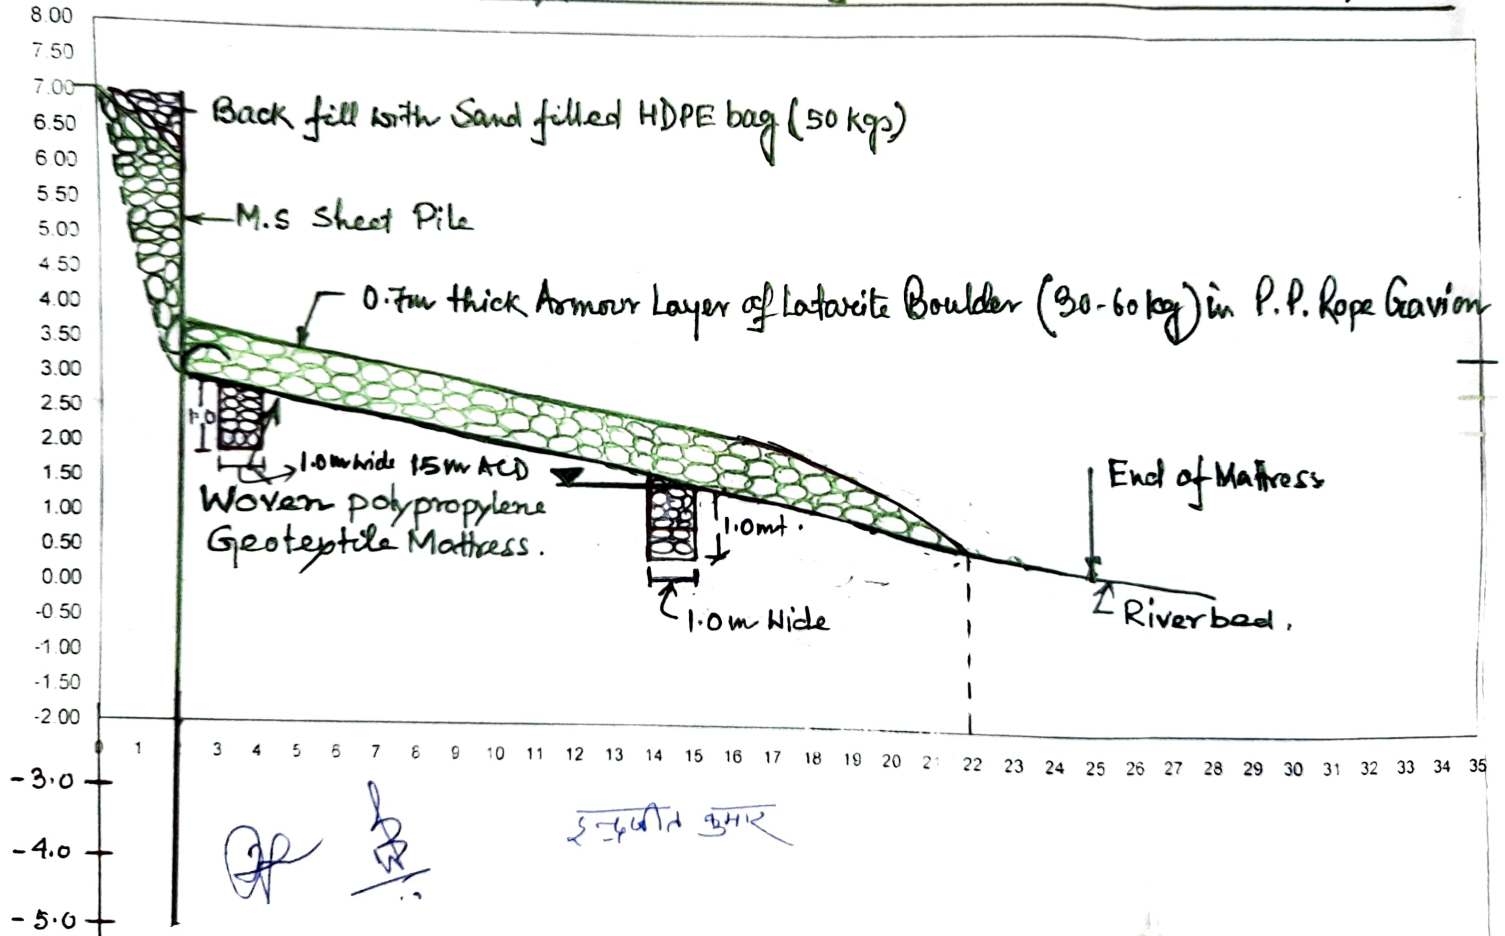 8.00
7.50
7.00
6.50
6.00
5.50
5.00
4.50
4.00
3.50
3.00
2.50
2.00
1.50
1.00
0.50
0.00
-0.50
-1.00
-1.50
-2.00
-3.0
-4.0
-5.0
Back fill with Sand filled HDPE bag (50 kgs)
M.S Sheet Pile
0.7m thick Armour Layer of Latarite Boulder (30-60 kg) in P.P. Rope Gavion
1.0
1.0m wide 15m ACD
Woven polypropylene
Geotextile Mattress.
1.0mt.
1.0m Wide
End of Mattress
Riverbed.
0 1 3 4 5 6 7 8 9 10 11 12 13 14 15 16 17 18 19 20 21 22 23 24 25 26 27 28 29 30 31 32 33 34 35
इन्द्रजीत कुमार